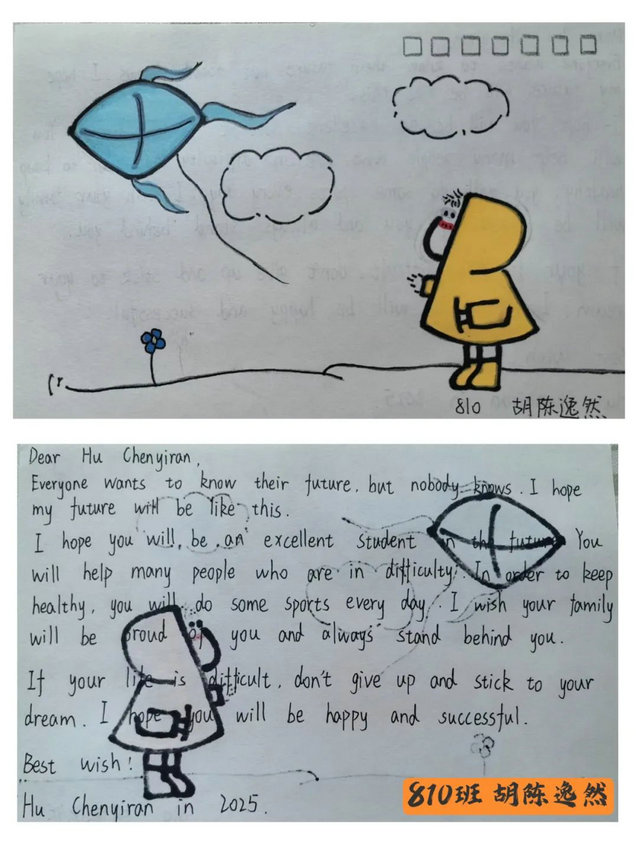 810 胡陈逸然
Dear Hu Chenyiran,
Everyone wants to know their future, but nobody knows. I hope
my future will be like this.
I hope you will be an excellent student in the future. You
will help many people who are in difficulty. In order to keep
healthy, you will do some sports every day. I wish your family
will be proud of you and always stand behind you.
If your life is difficult, don't give up and stick to your
dream. I hope you will be happy and successful.
Best wish!
Hu Chenyiran in 2025.
810班 胡陈逸然